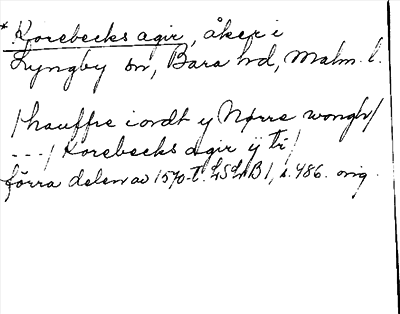 * Korebecks agir, åker i
Lyngby sn, Bara hd, Malm. l.
/hauffre iordt y Nørre wongh/
---/ Korebecks agir ÿ tr/
förra delen av 1570-t. LSLB 1, s. 486. orig.